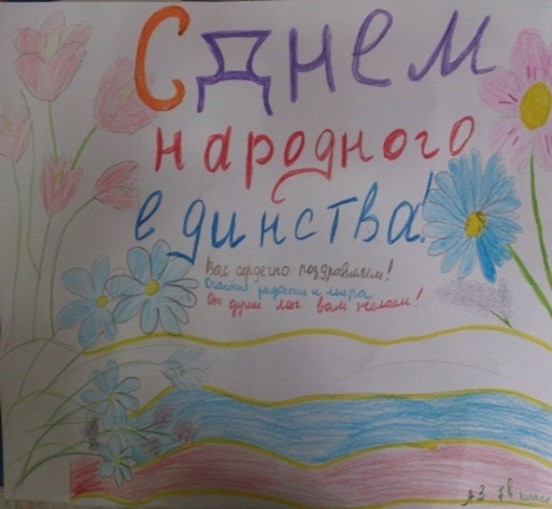 С Днем
народного
единства!
Вас сердечно поздравляем!
Счастья радости и мира
От души мы вам желаем!
АЗ 7в класс